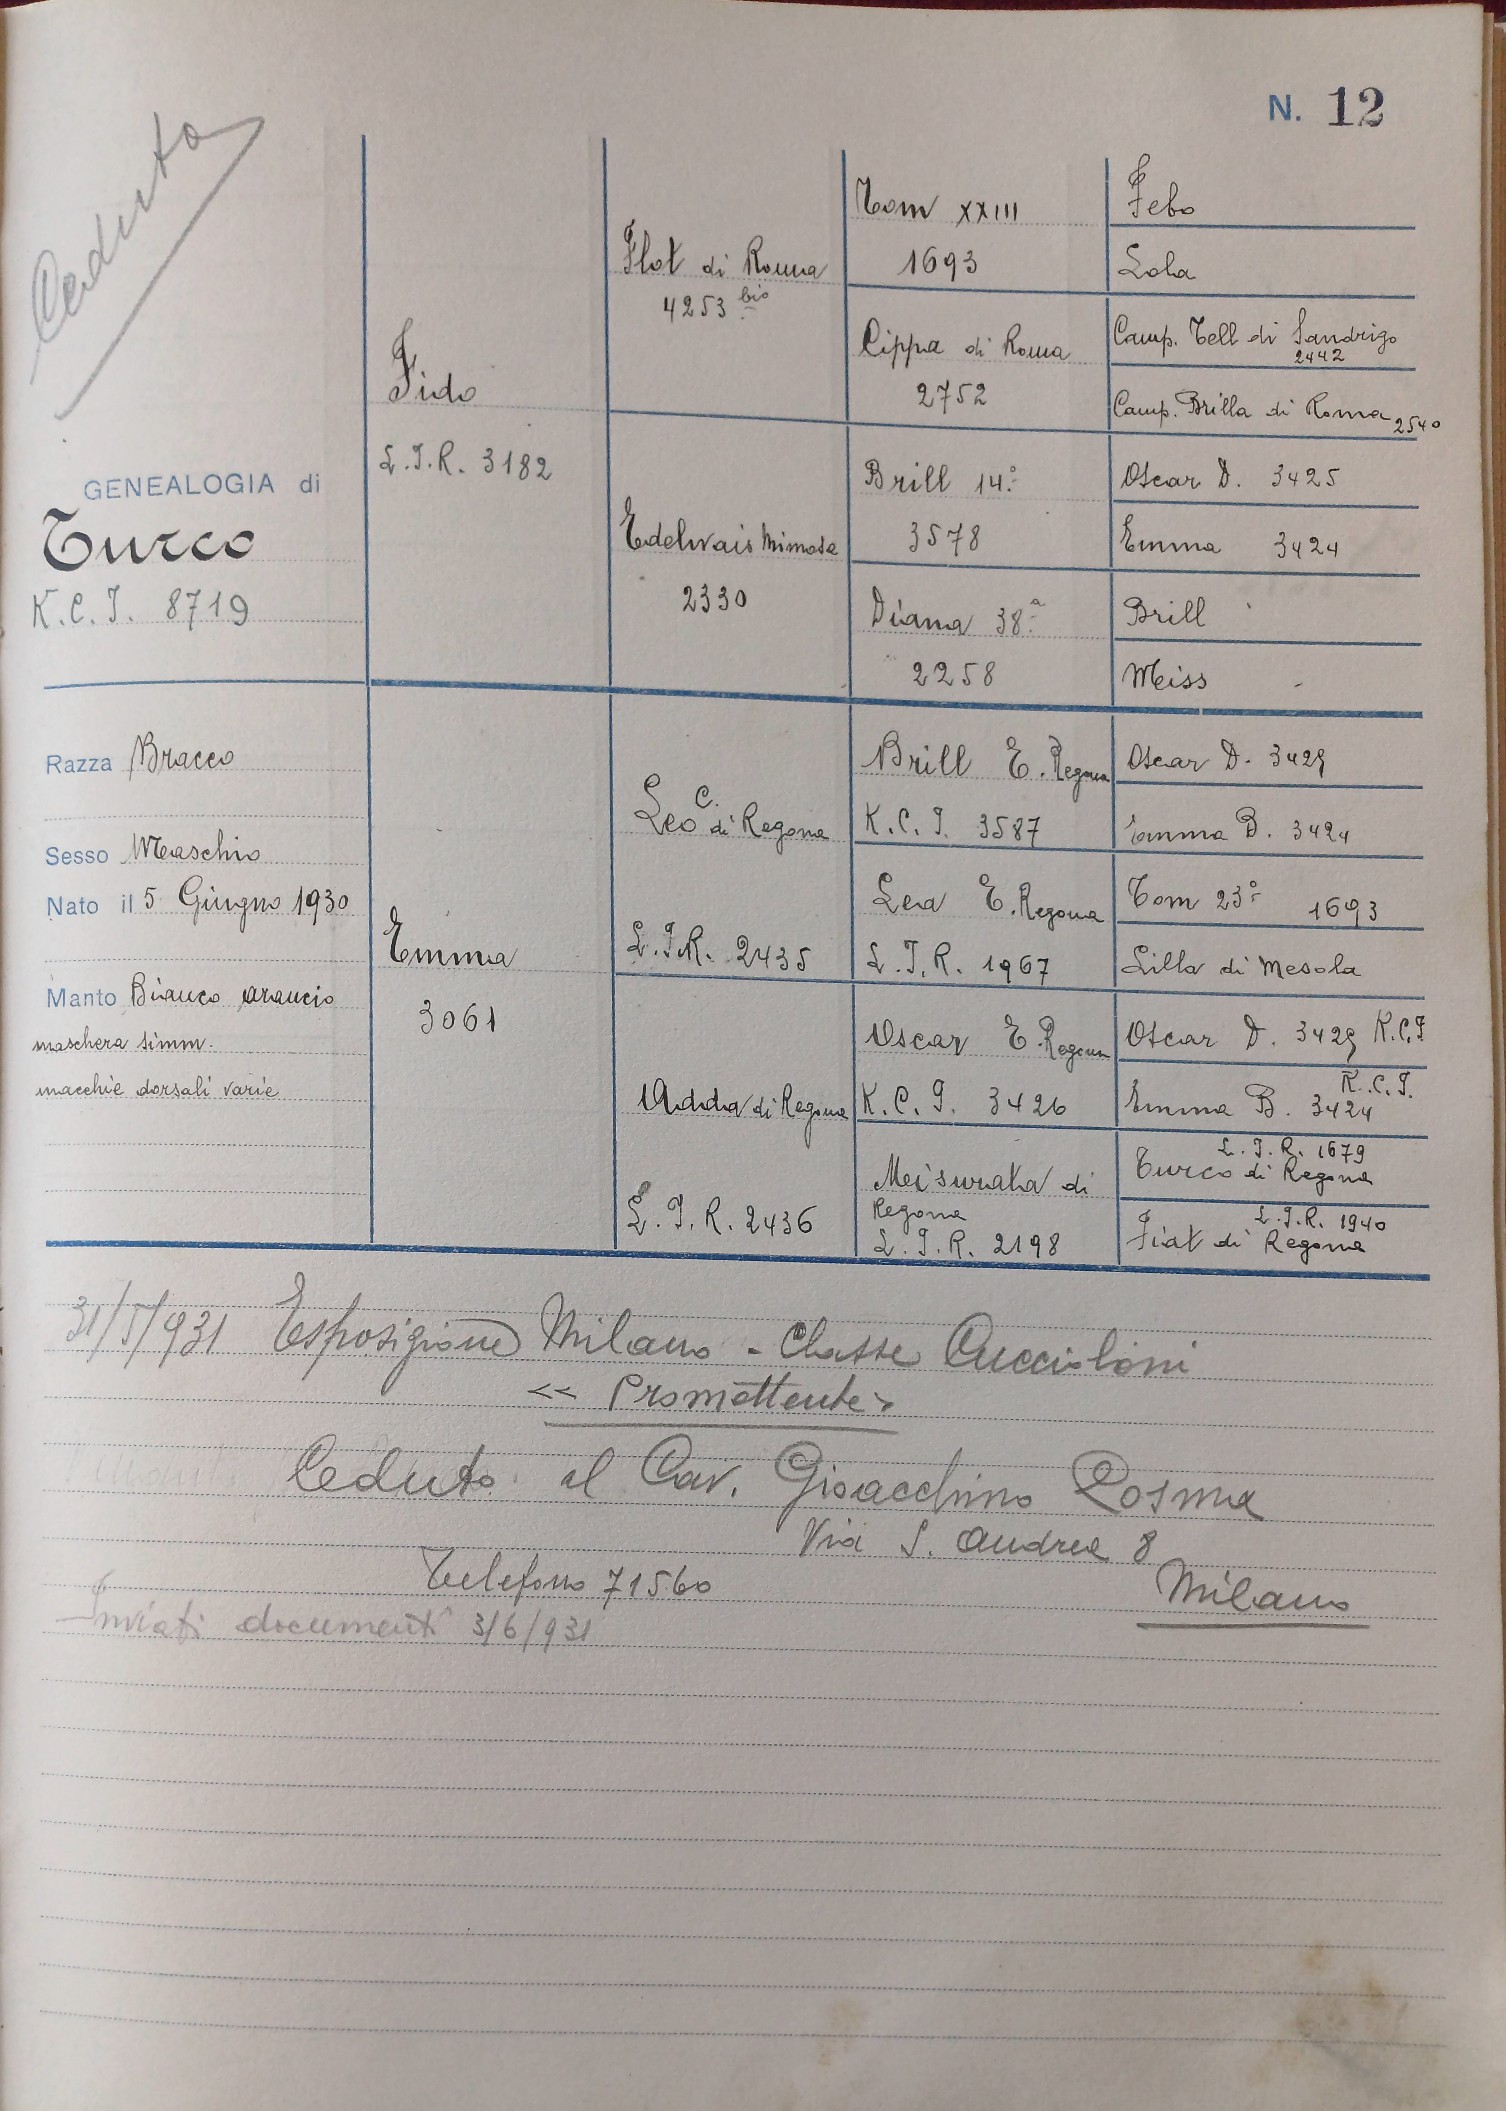 N. 12
Ceduto
GENEALOGIA di
Turco
K.C.I. 8719
Razza Bracco
Sesso Maschio
Nato il 5 Giugno 1930
Manto Bianco arancio
maschera simm.
macchie dorsali varie
Fido
L.I.R. 3182
Emma
3061
Flot di Roma
4253 bis
Edelvais Mimosa
2330
Leo C. di Regona
L.I.R. 2435
Adda di Regona
L.I.R. 2436
Tom XXIII
1693
Cippa di Roma
2752
Brill 14º
3578
Diana 38ª
2258
Brill E. Regona
K.C.I. 3587
Lea E. Regona
L.I.R. 1967
Oscar E. Regona
K.C.I. 3426
Meisurata di
Regona
L.I.R. 2198
Febo
Lola
Camp. Tell di Sandrigo
2442
Camp. Brilla di Roma 2540
Oscar D. 3425
Emma 3424
Brill
Meiss
Oscar D. 3425
Emma B. 3424
Tom 23º 1693
Lilla di Mesola
Oscar D. 3425 K.C.I
K.C.I.
Emma B. 3424
L.I.R. 1679
Turco di Regona
L.I.R. 1940
Fiat di Regona
31/5/931 Esposizione Milano - Classe Cuccioloni
<< Promettente >
Ceduto al Cav. Gioacchino Cosma
Via S. Andrea 8
Telefono 71560
Milano
Inviati documenti 3/6/931